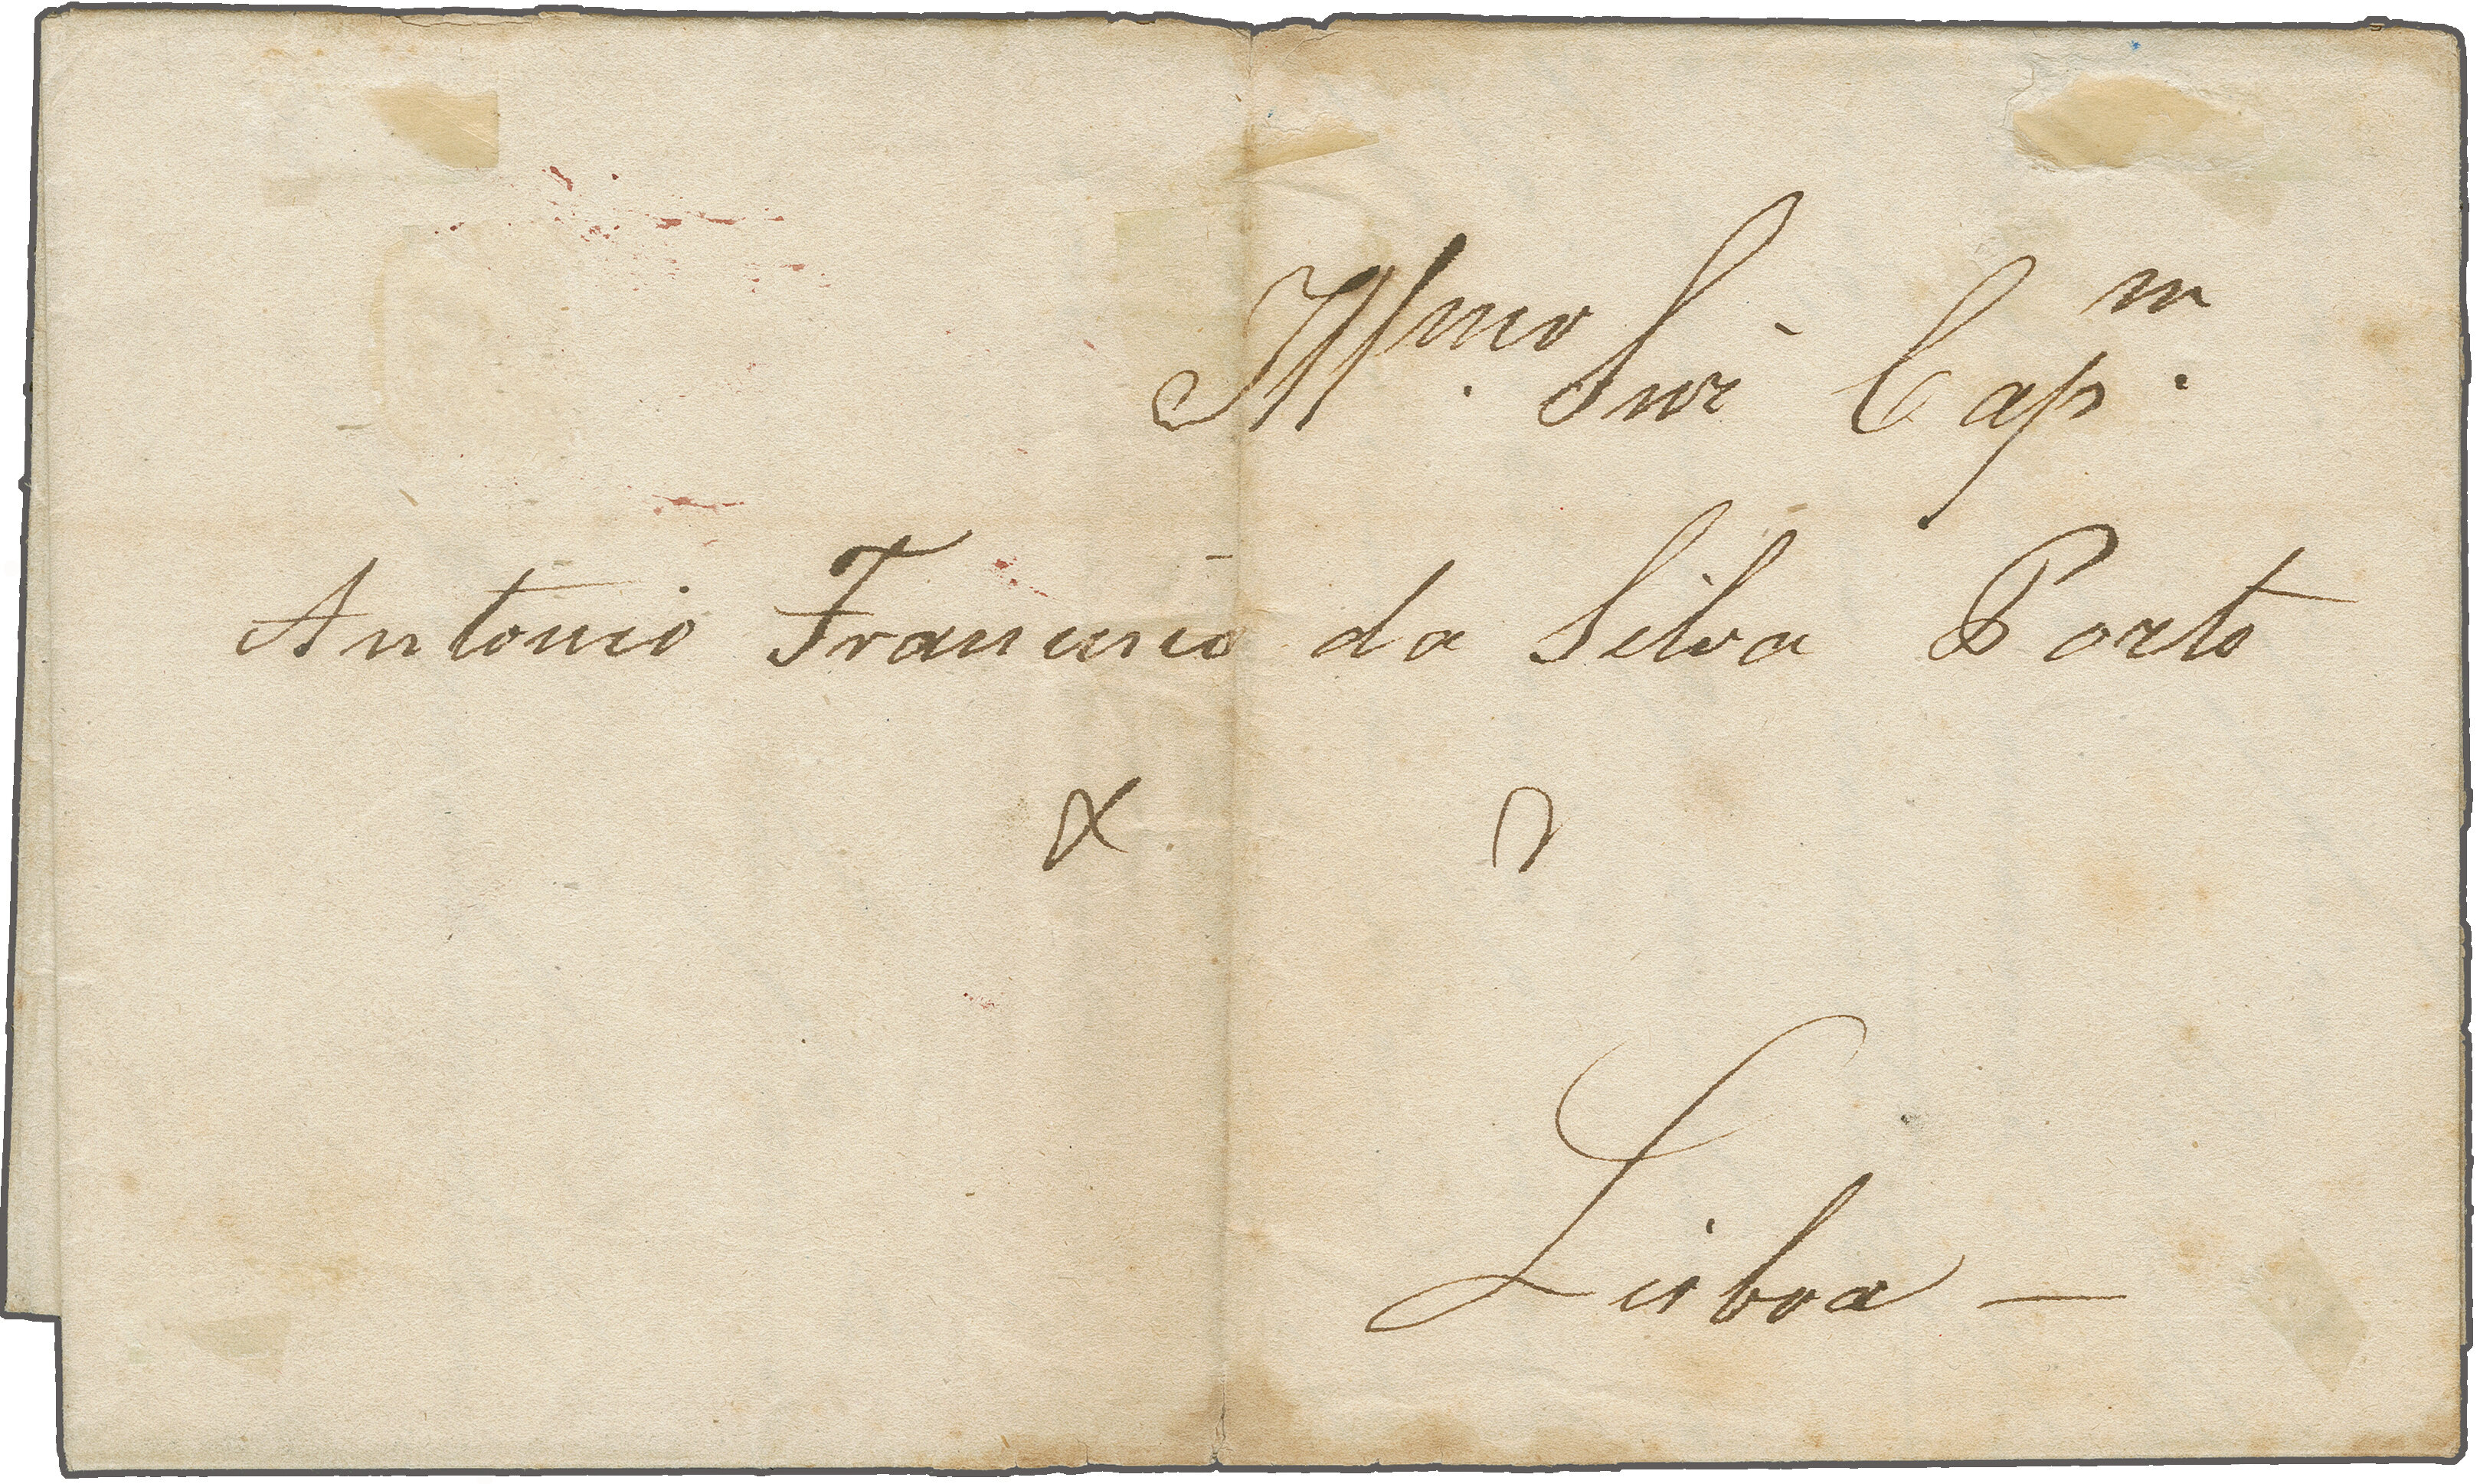 Illmo. Snr Capm.
Antonio Francisco da Silva Porto
Lisboa —